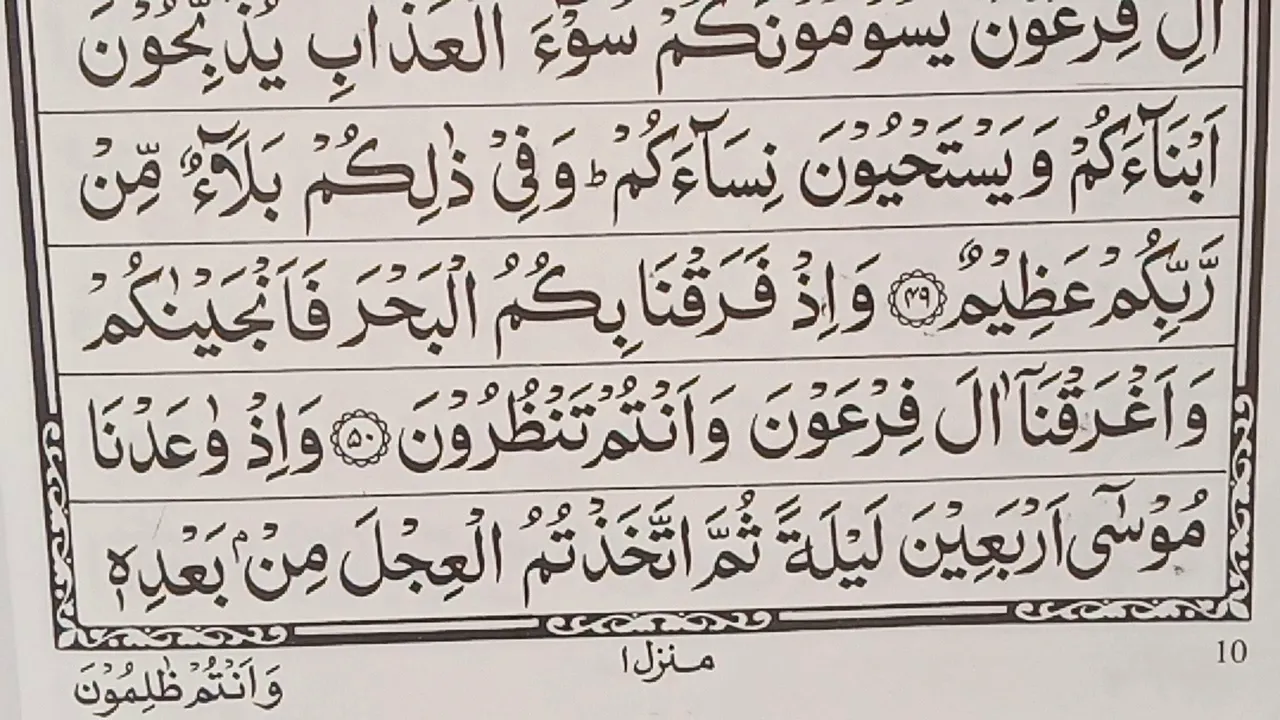 اٰلِ فِرْعَوْنَ يَسُوْمُوْنَكُمْ سُوْٓءَ الْعَذَابِ يُذَبِّحُوْنَ
اَبْنَآءَكُمْ وَيَسْتَحْيُوْنَ نِسَآءَكُمْ ؕ وَفِيْ ذٰلِكُمْ بَلَآءٌ مِّنْ
رَّبِّكُمْ عَظِيْمٌ ۴۹ وَاِذْ فَرَقْنَا بِكُمُ الْبَحْرَ فَاَنْجَيْنٰكُمْ
وَاَغْرَقْنَآ اٰلَ فِرْعَوْنَ وَاَنْتُمْ تَنْظُرُوْنَ ۵۰ وَاِذْ وٰعَدْنَا
مُوْسٰٓى اَرْبَعِيْنَ لَيْلَةً ثُمَّ اتَّخَذْتُمُ الْعِجْلَ مِنْۢ بَعْدِهٖ
وَاَنْتُمْ ظٰلِمُوْنَ منزل ١ 10